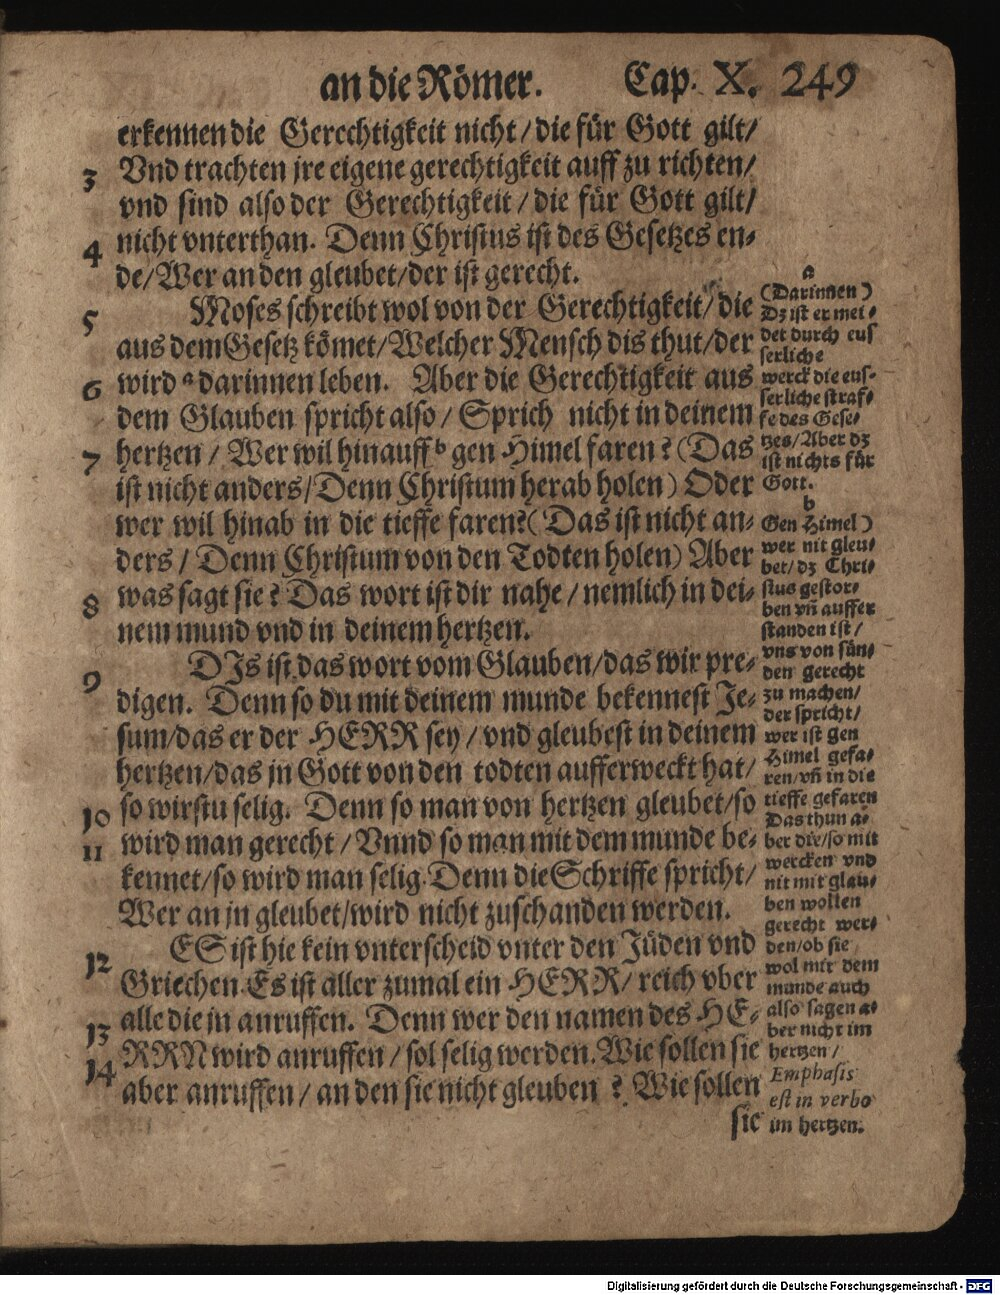 an die Römer. Cap. X. 249
erkennen die Gerechtigkeit nicht / die für Gott gilt/
3 Vnd trachten jre eigene gerechtigkeit auff zu richten/
vnd sind also der Gerechtigkeit / die für Gott gilt/
4 nicht vnterthan. Denn Christus ist des Gesetzes en-
de/Wer an den gleubet/der ist gerecht.
5 Moses schreibt wol von der Gerechtigkeit/ die
aus dem Gesetz kömet/Welcher Mensch dis thut/der
6 wird a darinnen leben. Aber die Gerechtigkeit aus
dem Glauben spricht also/ Sprich nicht in deinem
7 hertzen / Wer wil hinauff b gen Himel faren? (Das
ist nicht anders/Denn Christum herab holen) Oder
wer wil hinab in die tieffe faren?(Das ist nicht an-
ders / Denn Christum von den Todten holen) Aber
8 was sagt sie? Das wort ist dir nahe / nemlich in dei-
nem mund vnd in deinem hertzen.
9 DJs ist das wort vom Glauben/das wir pre-
digen. Denn so du mit deinem munde bekennest Je-
sum/das er der HERR sey / vnd gleubest in deinem
hertzen/das jn Gott von den todten aufferweckt hat/
10 so wirstu selig. Denn so man von hertzen gleubet/so
11 wird man gerecht / Vnnd so man mit dem munde be-
kennet/so wird man selig. Denn die Schriffe spricht/
Wer an jn gleubet/wird nicht zuschanden werden.
12 ES ist hie kein vnterscheid vnter den Jüden vnd
Griechen. Es ist aller zumal ein HERR/ reich vber
13 alle die jn anruffen. Denn wer den namen des HE-
14 RRN wird anruffen / sol selig werden. Wie sollen sie
aber anruffen / an den sie nicht gleuben ? Wie sollen
sie
a
(Darinnen)
Dz ist er mei-
det durch eus
serliche
werck die eus-
serliche straf-
fe des Gese-
tzes/Aber dz
ist nichts für
Gott.
b
Gen Himel)
wer nit gleu-
bet/ dz Chri-
stus gestor-
ben vñ auffer
standen ist /
vns von sün-
den gerecht
zu machen/
der spricht/
wer ist gen
Himel gefa-
ren/vñ in die
tieffe gefaren
Das thun a-
ber die/so mit
wercken vnd
nit mit glau-
ben wollen
gerecht wer-
den/ob sie
wol mit dem
munde auch
also sagen a-
ber nicht im
hertzen /
Emphasis
est in verbo
im hertzen.
Digitalisierung gefördert durch die Deutsche Forschungsgemeinschaft - DFG